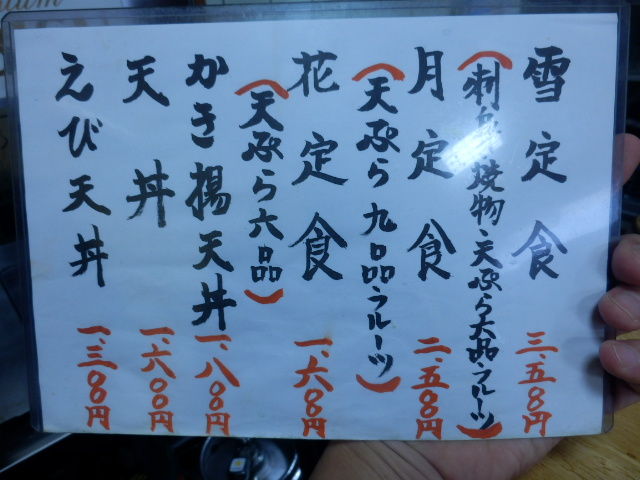 雪定食 三、五〇円
(刺身、焼物、天ぷら六品フルーツ)
月定食 二、五〇円
(天ぷら九品フルーツ)
花定食 一、六〇円
(天ぷら六品)
かき揚天丼 一、八〇円
天丼 一、六〇〇円
えび天丼 一、三〇〇円